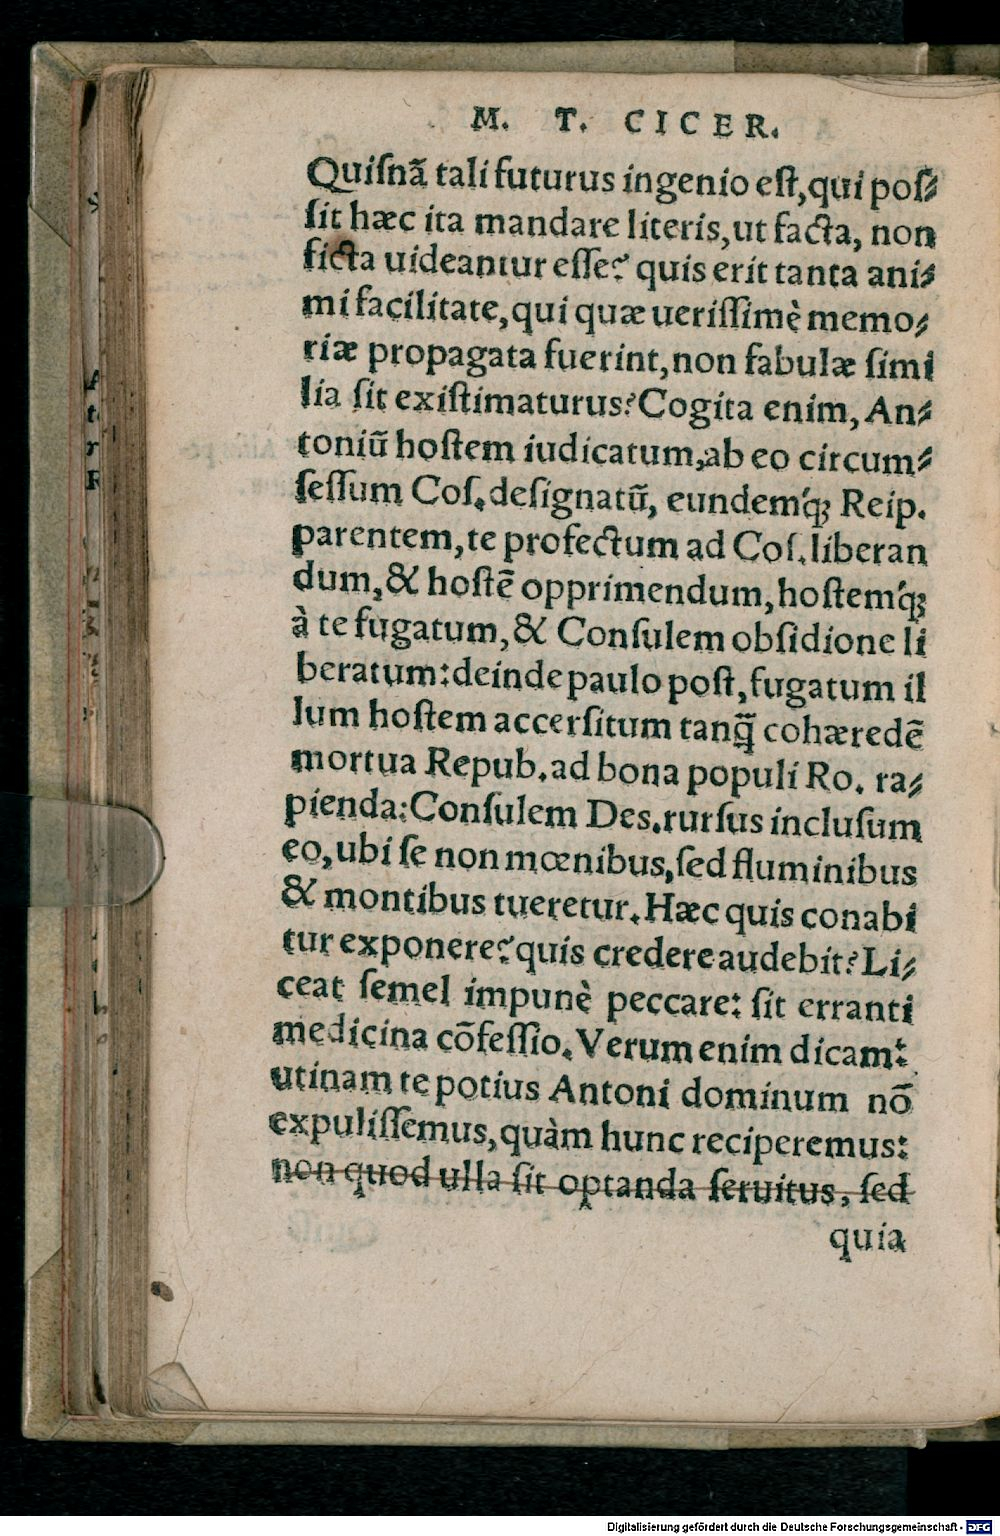 M. T. CICER.
Quiſnã tali futurus ingenio eſt, qui poſ⸗
ſit hæc ita mandare literis, ut facta, non
ficta uideantur eſſe? quis erit tanta ani⸗
mi facilitate, qui quæ ueriſſimè memo⸗
riæ propagata fuerint, non fabulæ ſimi
lia ſit exiſtimaturus? Cogita enim, An⸗
toniũ hoſtem iudicatum, ab eo circum⸗
ſeſſum Coſ. deſignatũ, eundemq́; Reip.
parentem, te profectum ad Coſ. liberan
dum, & hoſtẽ opprimendum, hoſtemq́;
à te fugatum, & Conſulem obſidione li
beratum: deinde paulo poſt, fugatum il
lum hoſtem accerſitum tanq̃ cohæredẽ
mortua Repub. ad bona populi Ro. ra⸗
pienda: Conſulem Des. rurſus incluſum
eo, ubi ſe non mœnibus, ſed fluminibus
& montibus tueretur. Hæc quis conabi
tur exponere? quis credere audebit? Li⸗
ceat ſemel impunè peccare: ſit erranti
medicina cõfeſſio. Verum enim dicam:
utinam te potius Antoni dominum nõ
expuliſſemus, quàm hunc reciperemus:
non quod ulla ſit optanda ſeruitus, ſed
quia
Digitalisierung gefördert durch die Deutsche Forschungsgemeinschaft - DFG